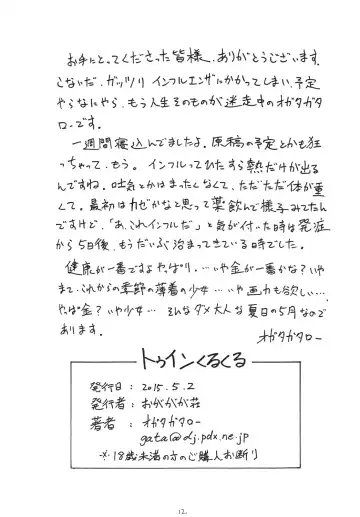 お手にとってくださった皆様、ありがとうございます。
こないだ、ガッツリ インフルエンザにかかってしまい、予定
やらなにやら、もう人生そのものが迷走中のオガタガタ
ローです。
一週間寝込んでましたよ。原稿の予定とかも狂
っちゃって、もう。インフルってひたすら熱だけが出る
んですね。吐気とかはまったくなくて、ただただ体が重
くて。最初はカゼかなと思って薬飲んで様子みてたん
ですけど、「あ、これインフルだ」と気が付いた時は発症
から5日後、もうだいぶ治まってきている時でした。
健康が一番ですよやっぱり。…いや金が一番かな?いや
まて、これからの季節の薄着の少女…いや画力も欲しい…
やっぱ金?いや少女… そんなダメ大人な夏日の5月なので
あります。
オガタガタロー
トゥインくるくる
発行日:2015.5.2
発行者:おががが荘
著者:オガタガタロー
gata@dj.pdx.ne.jp
※18歳未満の方のご購入お断り
12